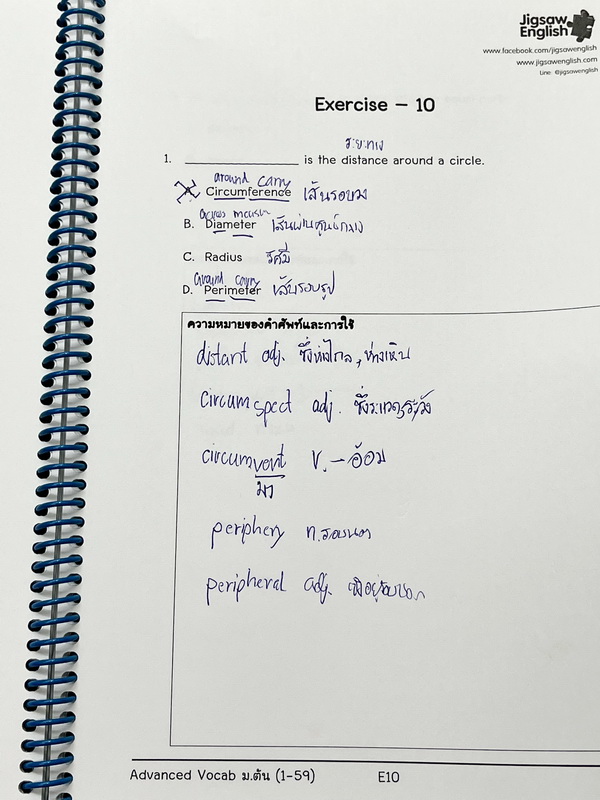 Jigsaw
English
www.facebook.com/jigsawenglish
www.jigsawenglish.com
Line @jigsawenglish
Exercise - 10
ระยะทาง
1. ____________ is the distance around a circle.
around carry
A. Circumference เส้นรอบวง
across measure
B. Diameter เส้นผ่านศูนย์กลาง
C. Radius รัศมี
around carry
D. Perimeter เส้นรอบรูป
ความหมายของคำศัพท์และการใช้
distant adj. ซึ่งห่างไกล, ห่างเหิน
circumspect adj. ซึ่งระแวดระวัง
circumvent v. - อ้อม
มา
periphery n. รอบนอก
peripheral adj. ซึ่งอยู่รอบนอก
Advanced Vocab ม.ต้น (1-59) E10